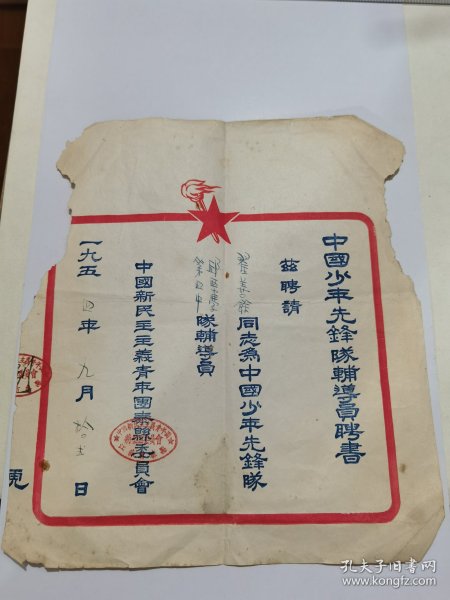 中國少年先鋒隊輔導員聘書
茲聘請
同志為中國少年先鋒隊
隊輔導員
中國新民主主義青年團泰縣委員會
一九五四年九月 日
孔夫子旧书网
www.kongfz.com